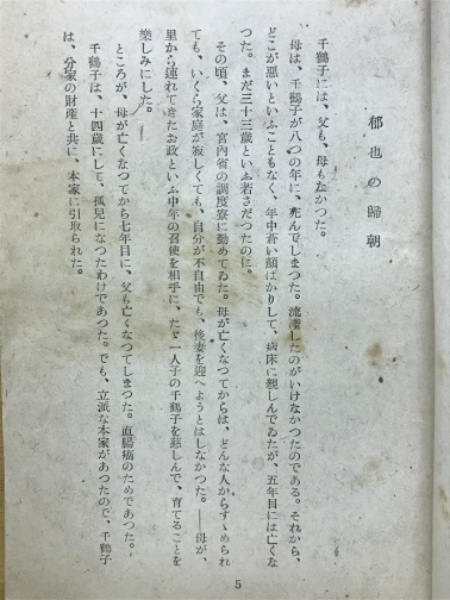 郁也の歸朝
千鶴子には、父も、母もなかつた。
母は、千鶴子が八つの年に、死んでしまつた。流産したのがいけなかつたのである。それから、
どこが惡いといふこともなく、年中蒼い顏ばかりして、病床に親しんでゐたが、五年目には亡くな
つた。まだ三十三歳といふ若さだつたのに。
その頃、父は、宮內省の調度寮に勤めてゐた。母が亡くなつてからは、どんな人からすゝめられ
ても、いくら家庭が寂しくても、自分が不自由でも、後妻を迎へようとはしなかつた。――母が、
里から連れてきたお政といふ中年の召使を相手に、たゞ一人子の千鶴子を慈しんで、育てることを
樂しみにした。――
ところが、母が亡くなつてから七年目に、父も亡くなつてしまつた。直腸癌のためであつた。
千鶴子は、十四歳にして、孤兒になつたわけであつた。でも、立派な本家があつたので、千鶴子
は、分家の財產と共に、本家に引取られた。
5